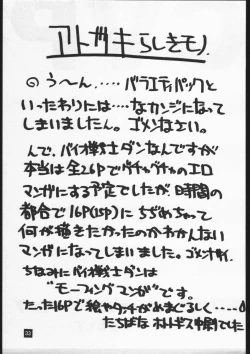 アトガキらしきモノ.
のう〜ん..... バラエティパックと
いったわりには....なカンジになって
しまいましたん。ゴメンなさい。
んで、バイオ戦士ダンなんですが
本当は全26Pでグチャグチャのエロ
マンガにする予定でしたが、時間の
都合で16P(15P)にちぢめちゃって
何が描きたかったのかわかんない
マンガになってしまいました。ゴメンナサイ.
ちなみにバイオ戦士ダンは
"モーフィングマンガ"です。
たった16Pで絵やタッチがめまぐるしく.....
たちばな ホトトギス 中園でした